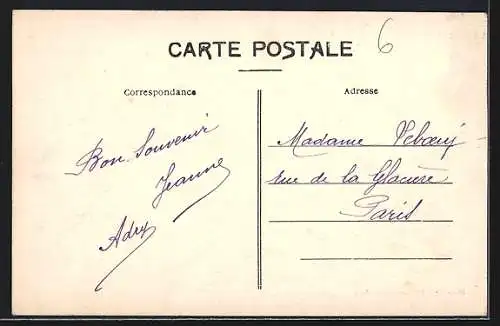 CARTE POSTALE
6
Correspondance
Adresse
Bon Souvenir
Jeanne
Madame
rue de la Glacière
Paris